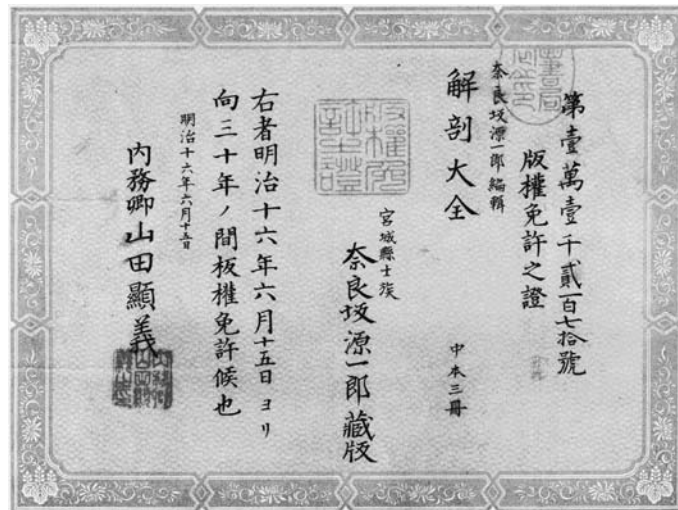 第壹萬壹千貳百七拾號
版權免許之證
奈良坂源一郎編輯
解剖大全
中本三冊
版權免許證
宮城縣士族
奈良坂源一郎藏版
右者明治十六年六月十五日ヨリ
向三十年ノ間板權免許候也
明治十六年六月十五日
内務卿山田顯義